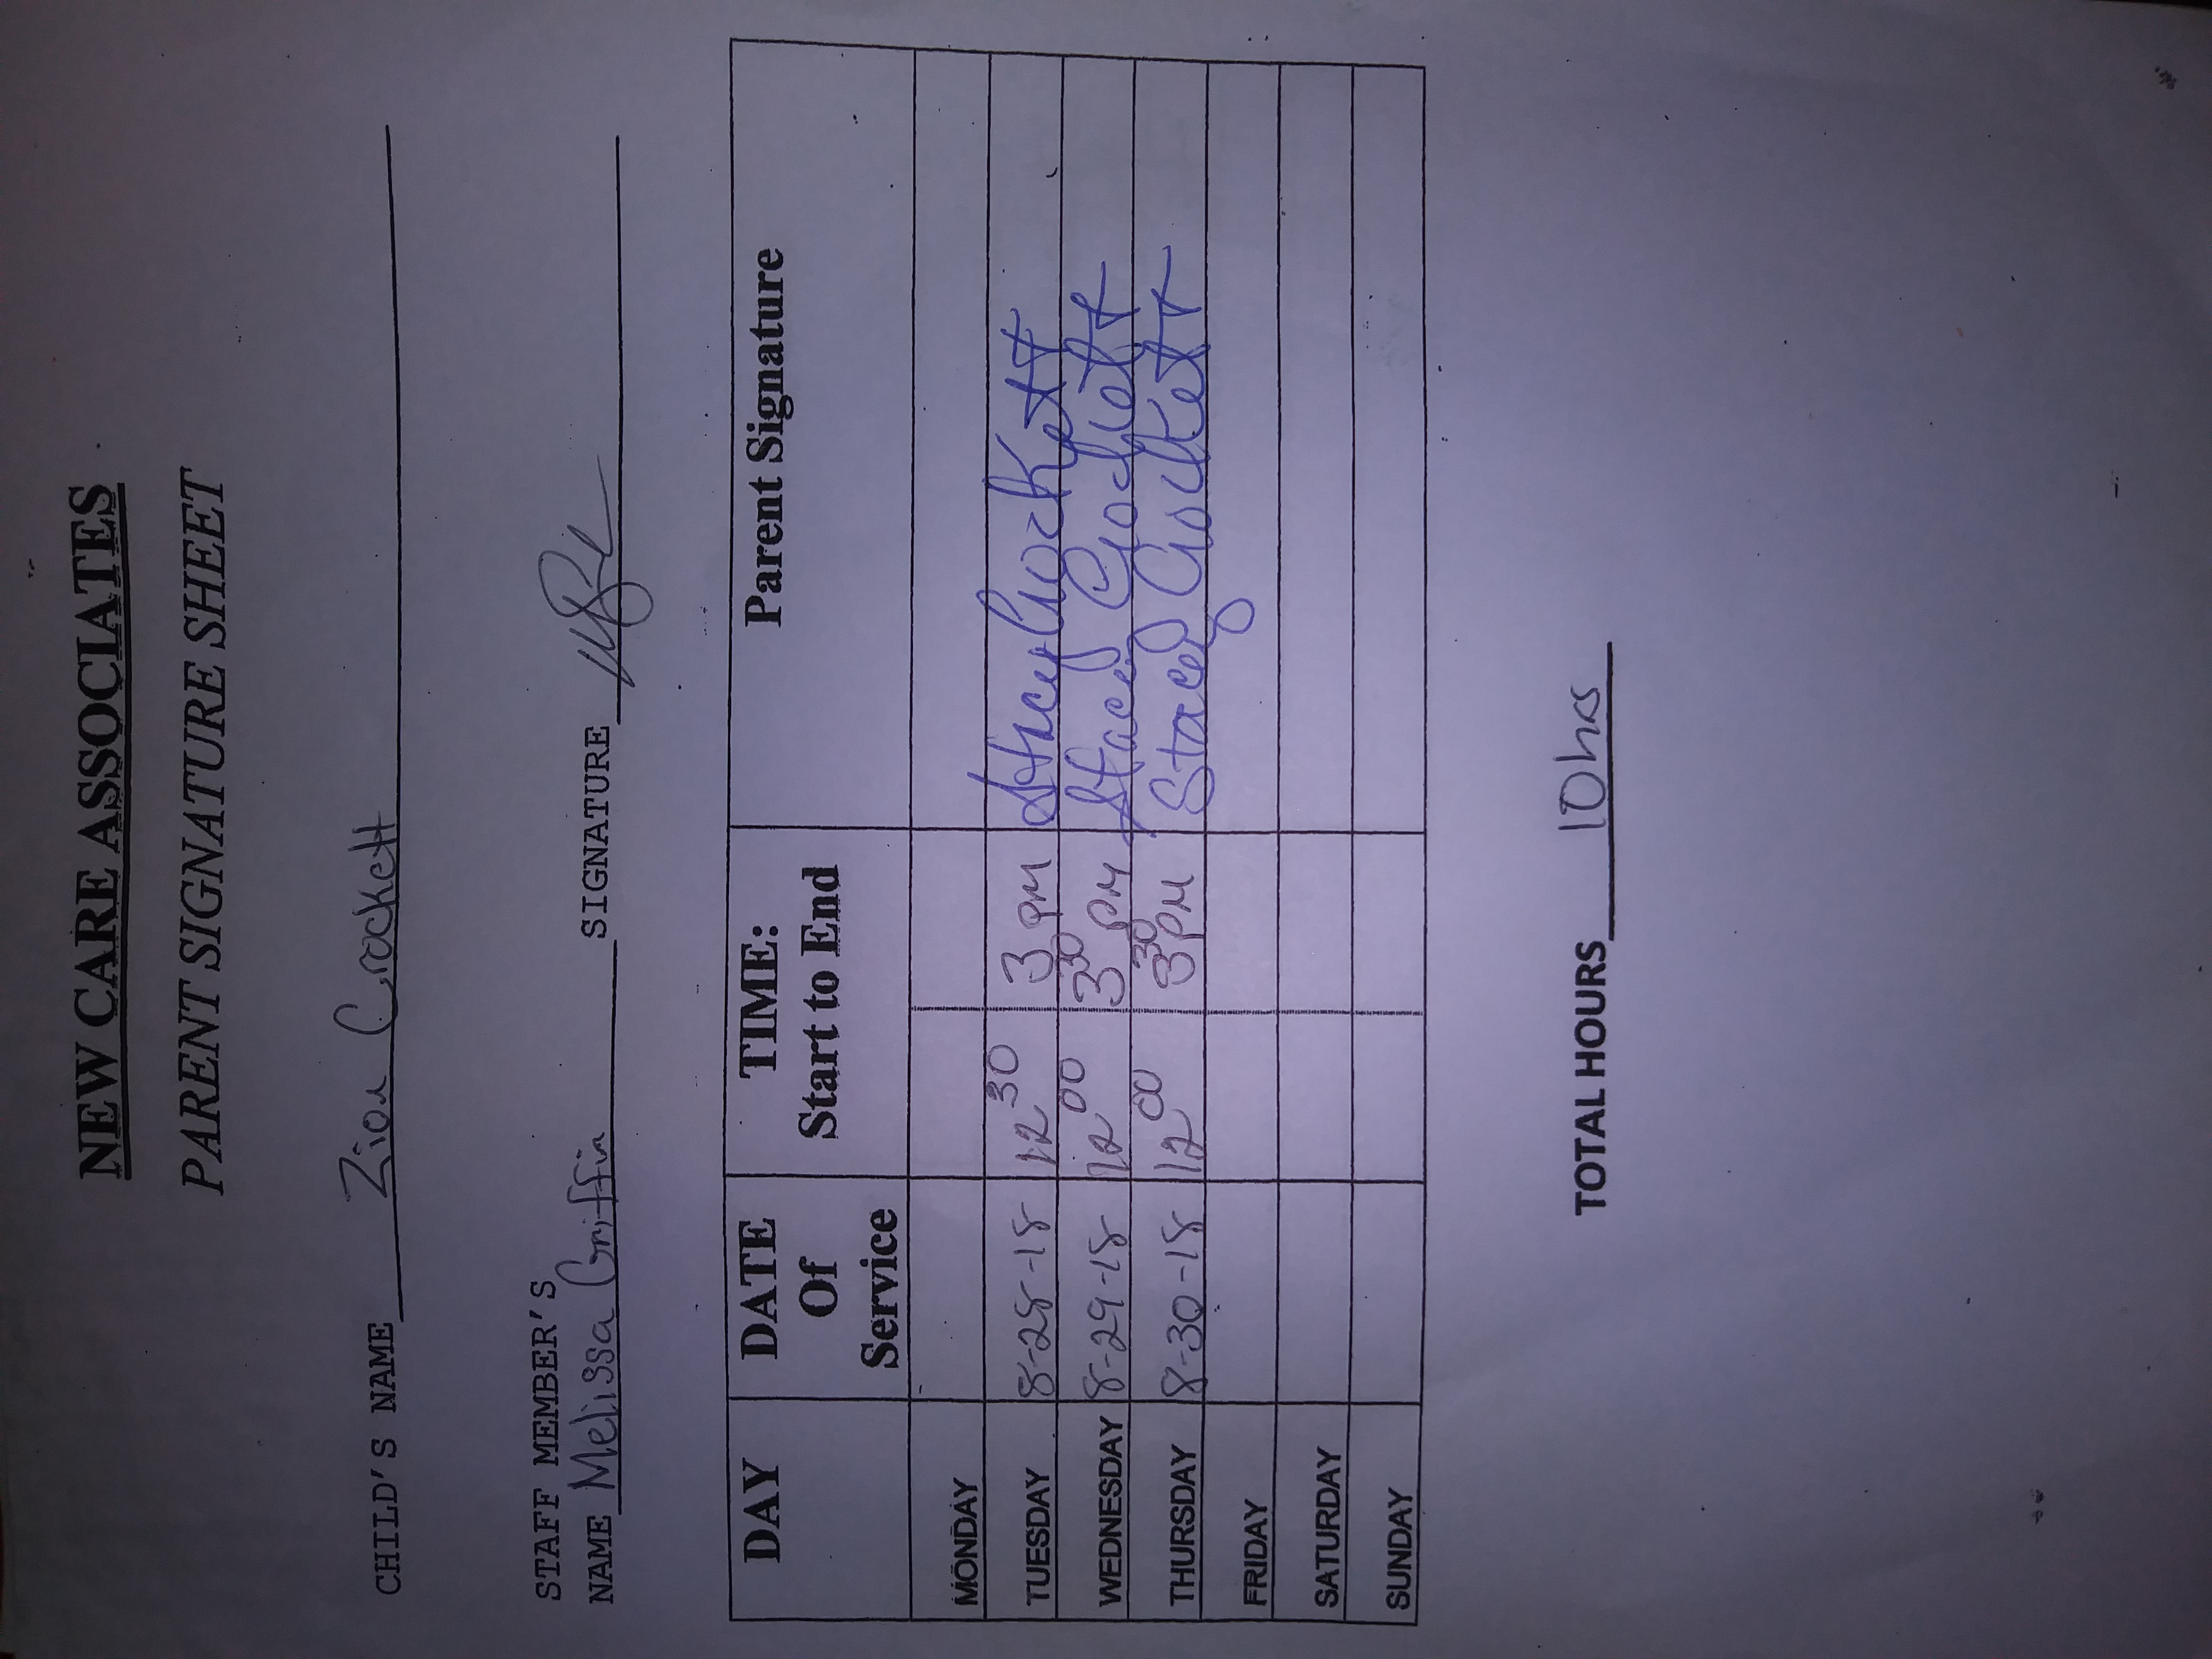 NEW CARE ASSOCIATES
PARENT SIGNATURE SHEET
CHILD'S NAME Zion Crockett
STAFF MEMBER'S
NAME Melissa Griffin SIGNATURE
DAY DATE Of Service TIME: Start to End Parent Signature
MONDAY
TUESDAY 8-28-18 12 30 3 PM Stacy Crockett
WEDNESDAY 8-29-18 12 00 3 30 PM Stacey Crockett
THURSDAY 8-30-18 12 00 3 30 PM Stacey Crockett
FRIDAY
SATURDAY
SUNDAY
TOTAL HOURS 10 hrs